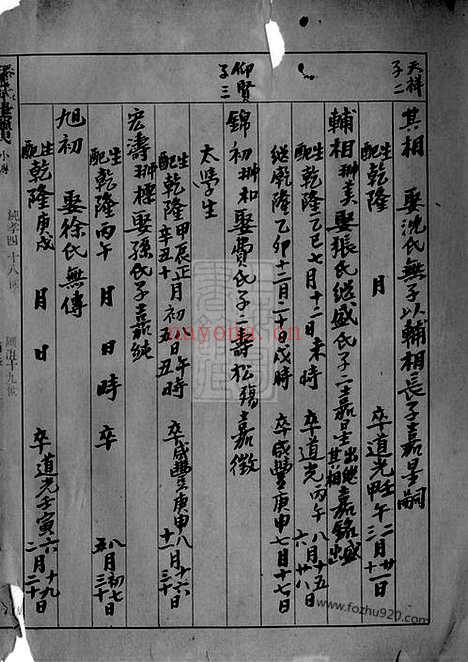 天祥
子二
其相 娶沈氏無子以輔相長子嘉星嗣
生乾隆 月 卒道光甲午二月十一日
配 壬辰
輔相翀美娶張氏继盛氏子二嘉星出继其相嘉銘盛出
生乾隆乙巳七月十二日未時 卒道光丙午八月十五日
配 六 廿八
继乾隆乙卯十二月二十日戌時 卒咸豐庚申七月十七日
仰賢
子三
錦初翀和娶費氏子二壽松殤嘉徵
太學生
生乾隆甲辰正月初五日午時 卒咸豐庚申八月十六日
配 辛丑十 五丑
宏濤翀標娶孫氏子嘉純
生乾隆丙午 月 日時 卒 八月初七日
配 五 三十
旭初 娶徐氏無傳
生乾隆庚戌 月 日 卒道光壬寅六月十九日
配 二 二十
純孝四十八
nayona.cn
www.fozhu920.com